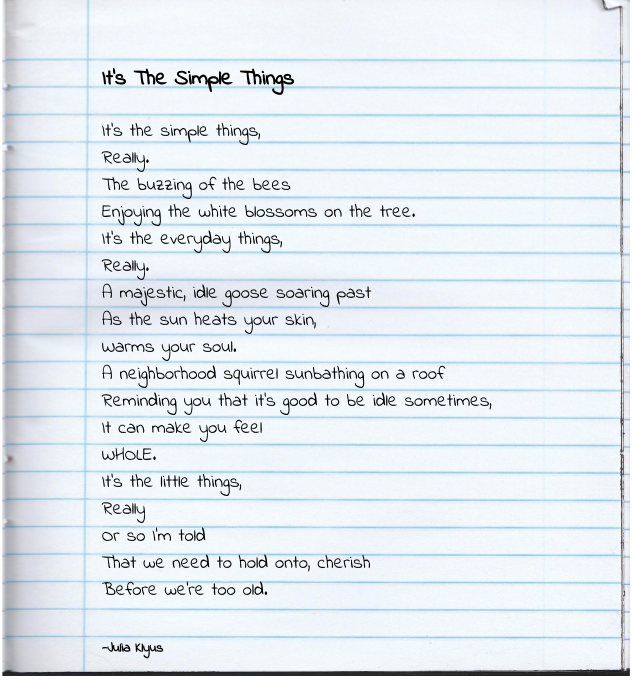 It's The Simple Things
It's the simple things,
Really.
The buzzing of the bees
Enjoying the white blossoms on the tree.
It's the everyday things,
Really.
A majestic, idle goose soaring past
As the sun heats your skin,
warms your soul.
A neighborhood squirrel sunbathing on a roof
Reminding you that it's good to be idle sometimes,
It can make you feel
WHOLE.
It's the little things,
Really
or so i'm told
That we need to hold onto, cherish
Before we're too old.
-Julia Klyus